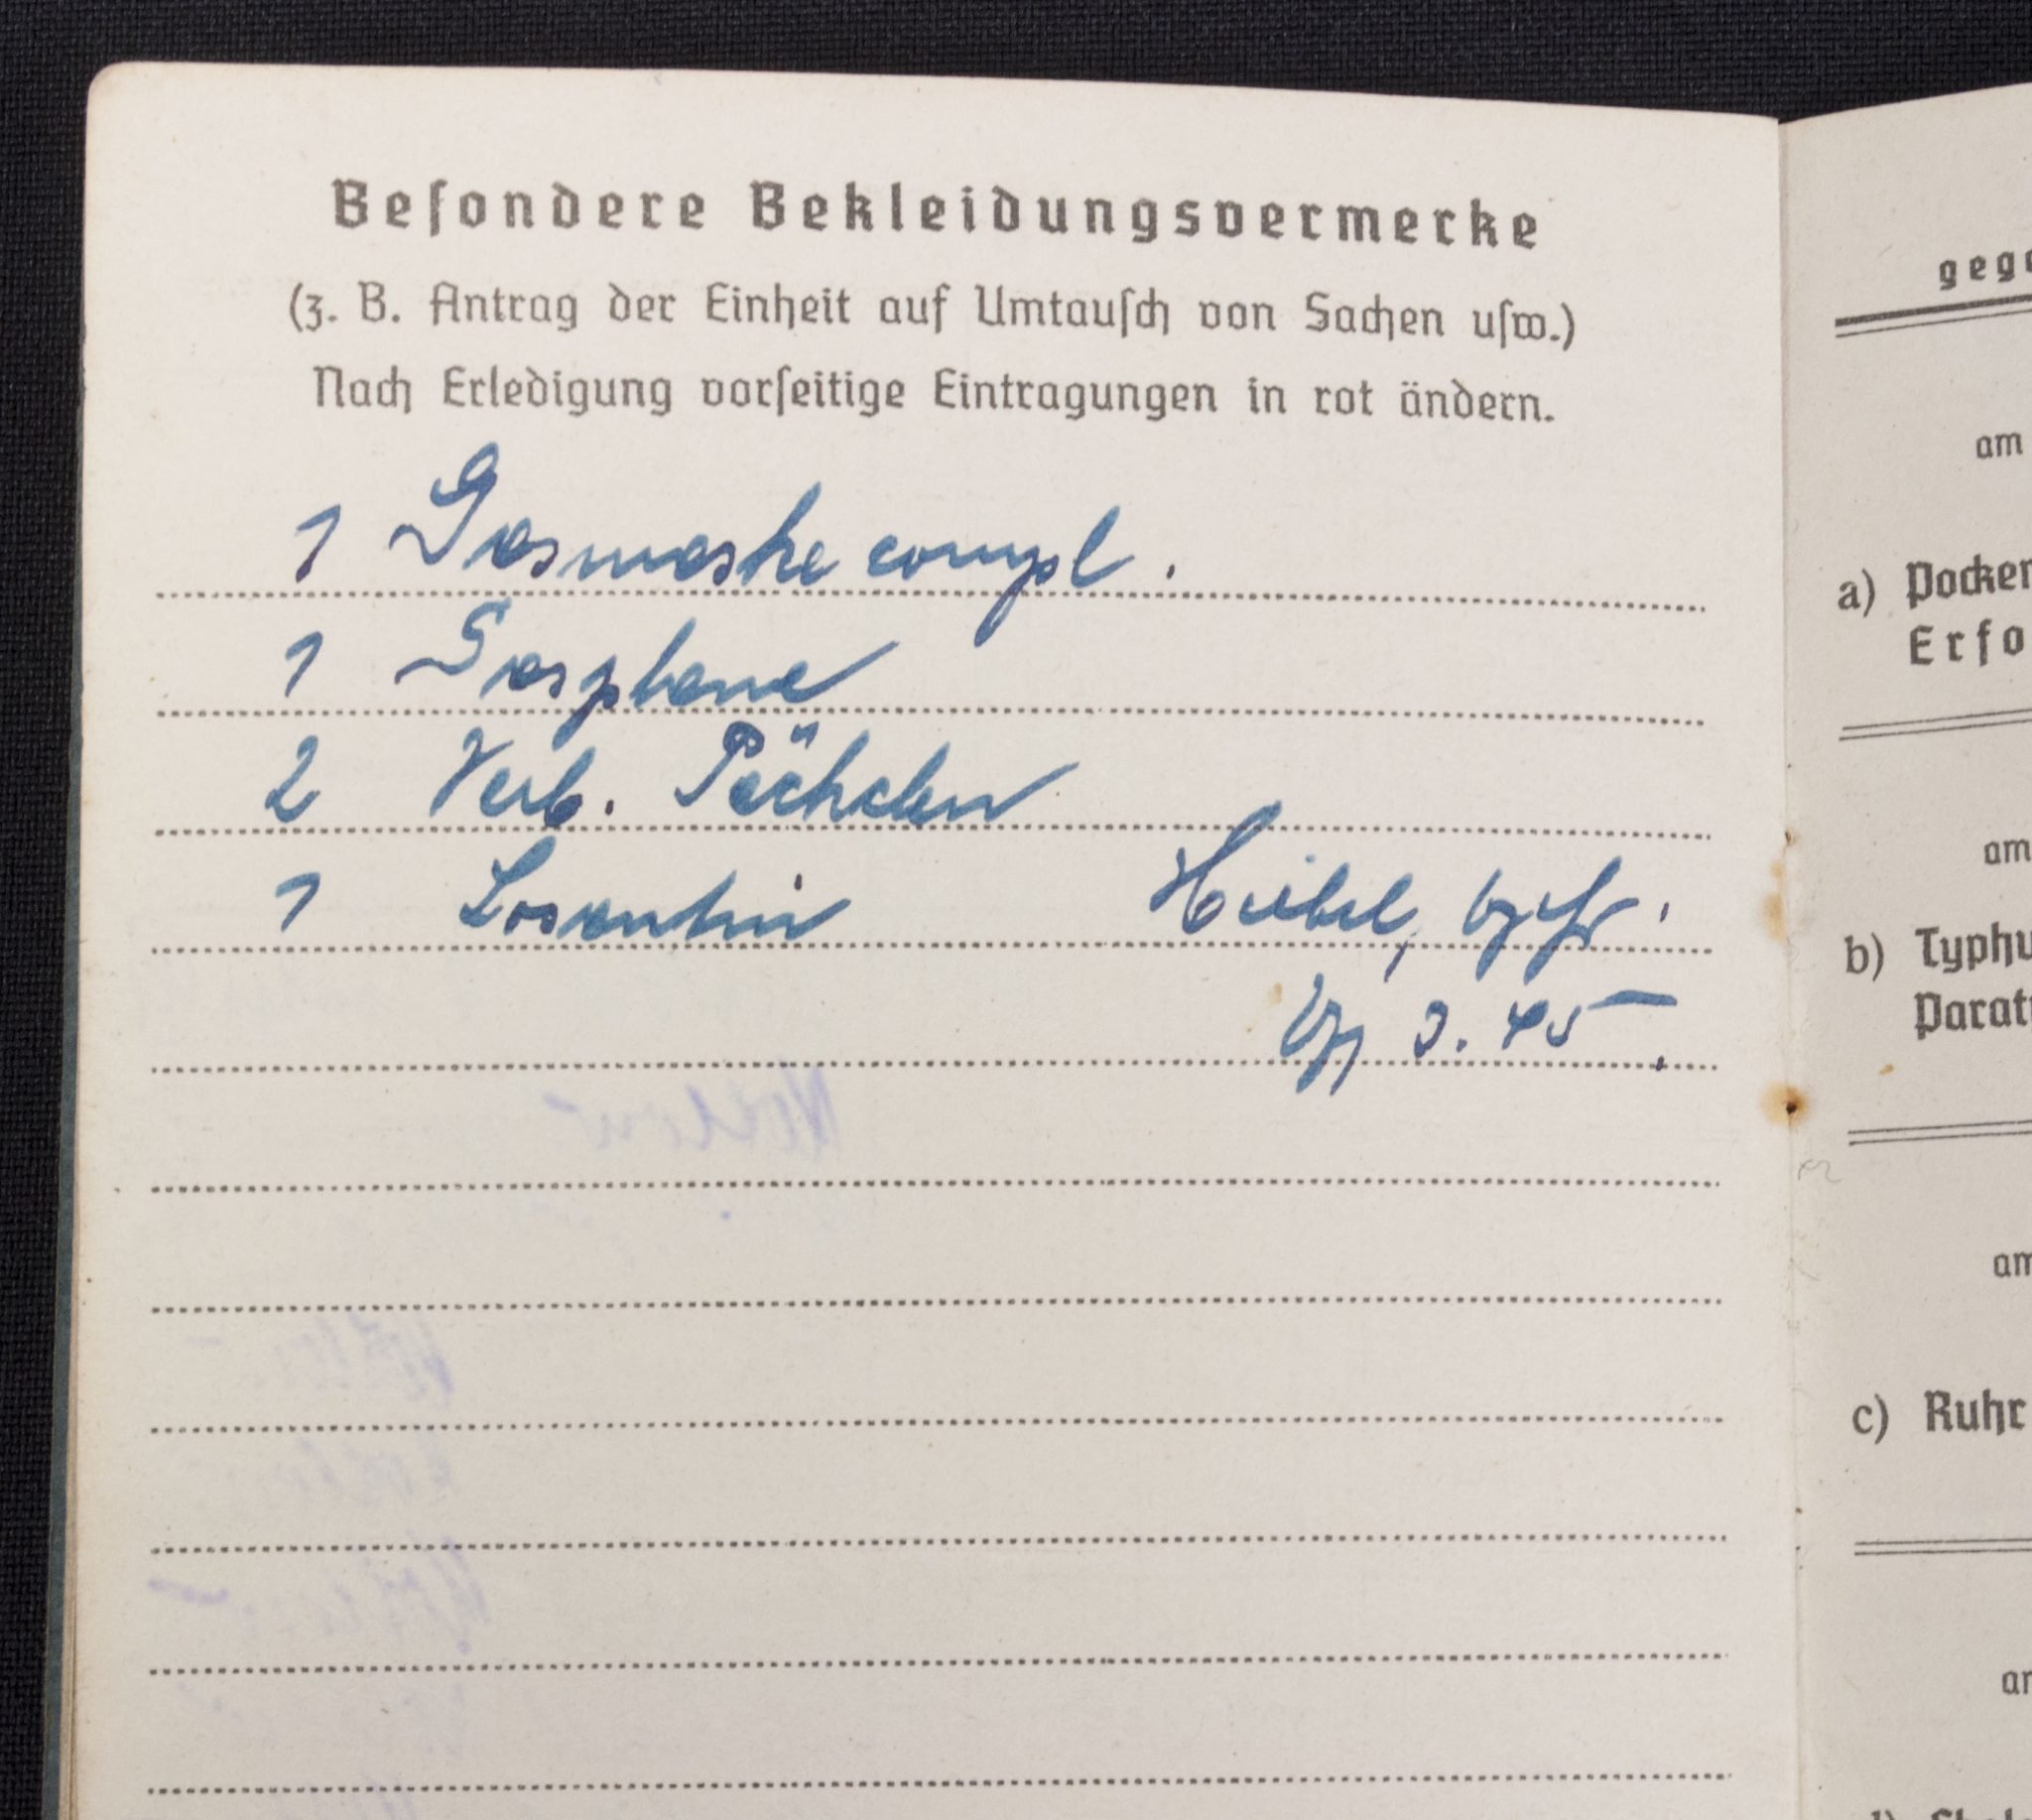 Besondere Bekleidungsvermerke
(z. B. Antrag der Einheit auf Umtausch von Sachen usw.)
Nach Erledigung vorseitige Eintragungen in rot ändern.
1 Gasmaske compl.
1 Gasplane
2 Verb. Päckchen
1 Losantin
3. 45.
geg
am
a) Pocken
Erfo
am
b) Typhu
Parat
am
c) Ruhr